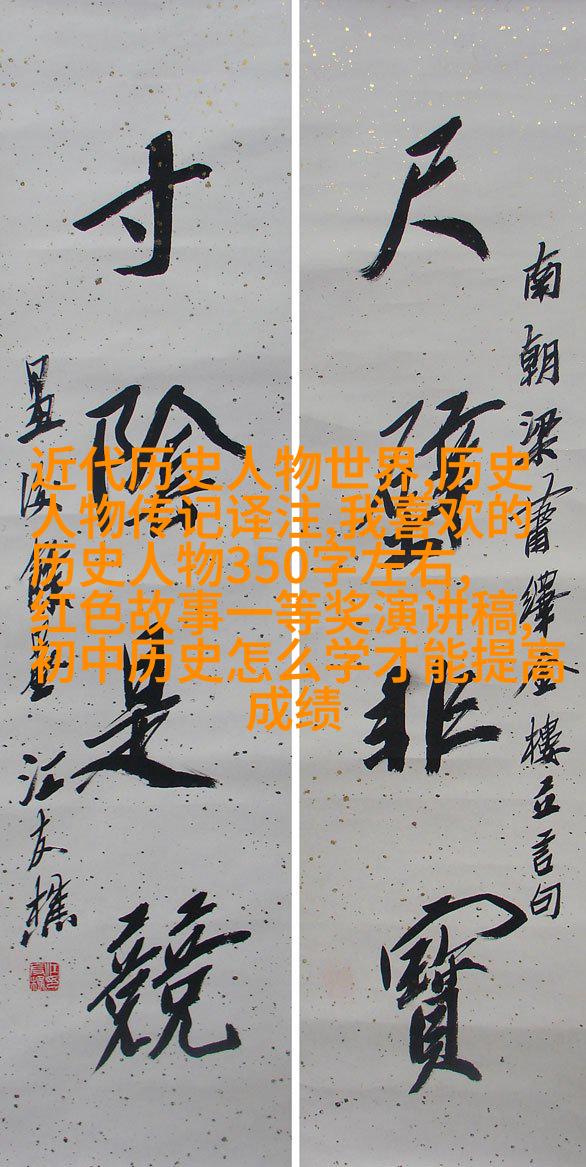 南朝梁蕭繹金樓立言句
尺璧非寶
寸陰是競
汪友樵
近代历史人物世界,历史
人物传记译注,我喜欢的
历史人物350字左右,
红色故事一等奖演讲稿,
初中历史怎么学才能提高
成绩